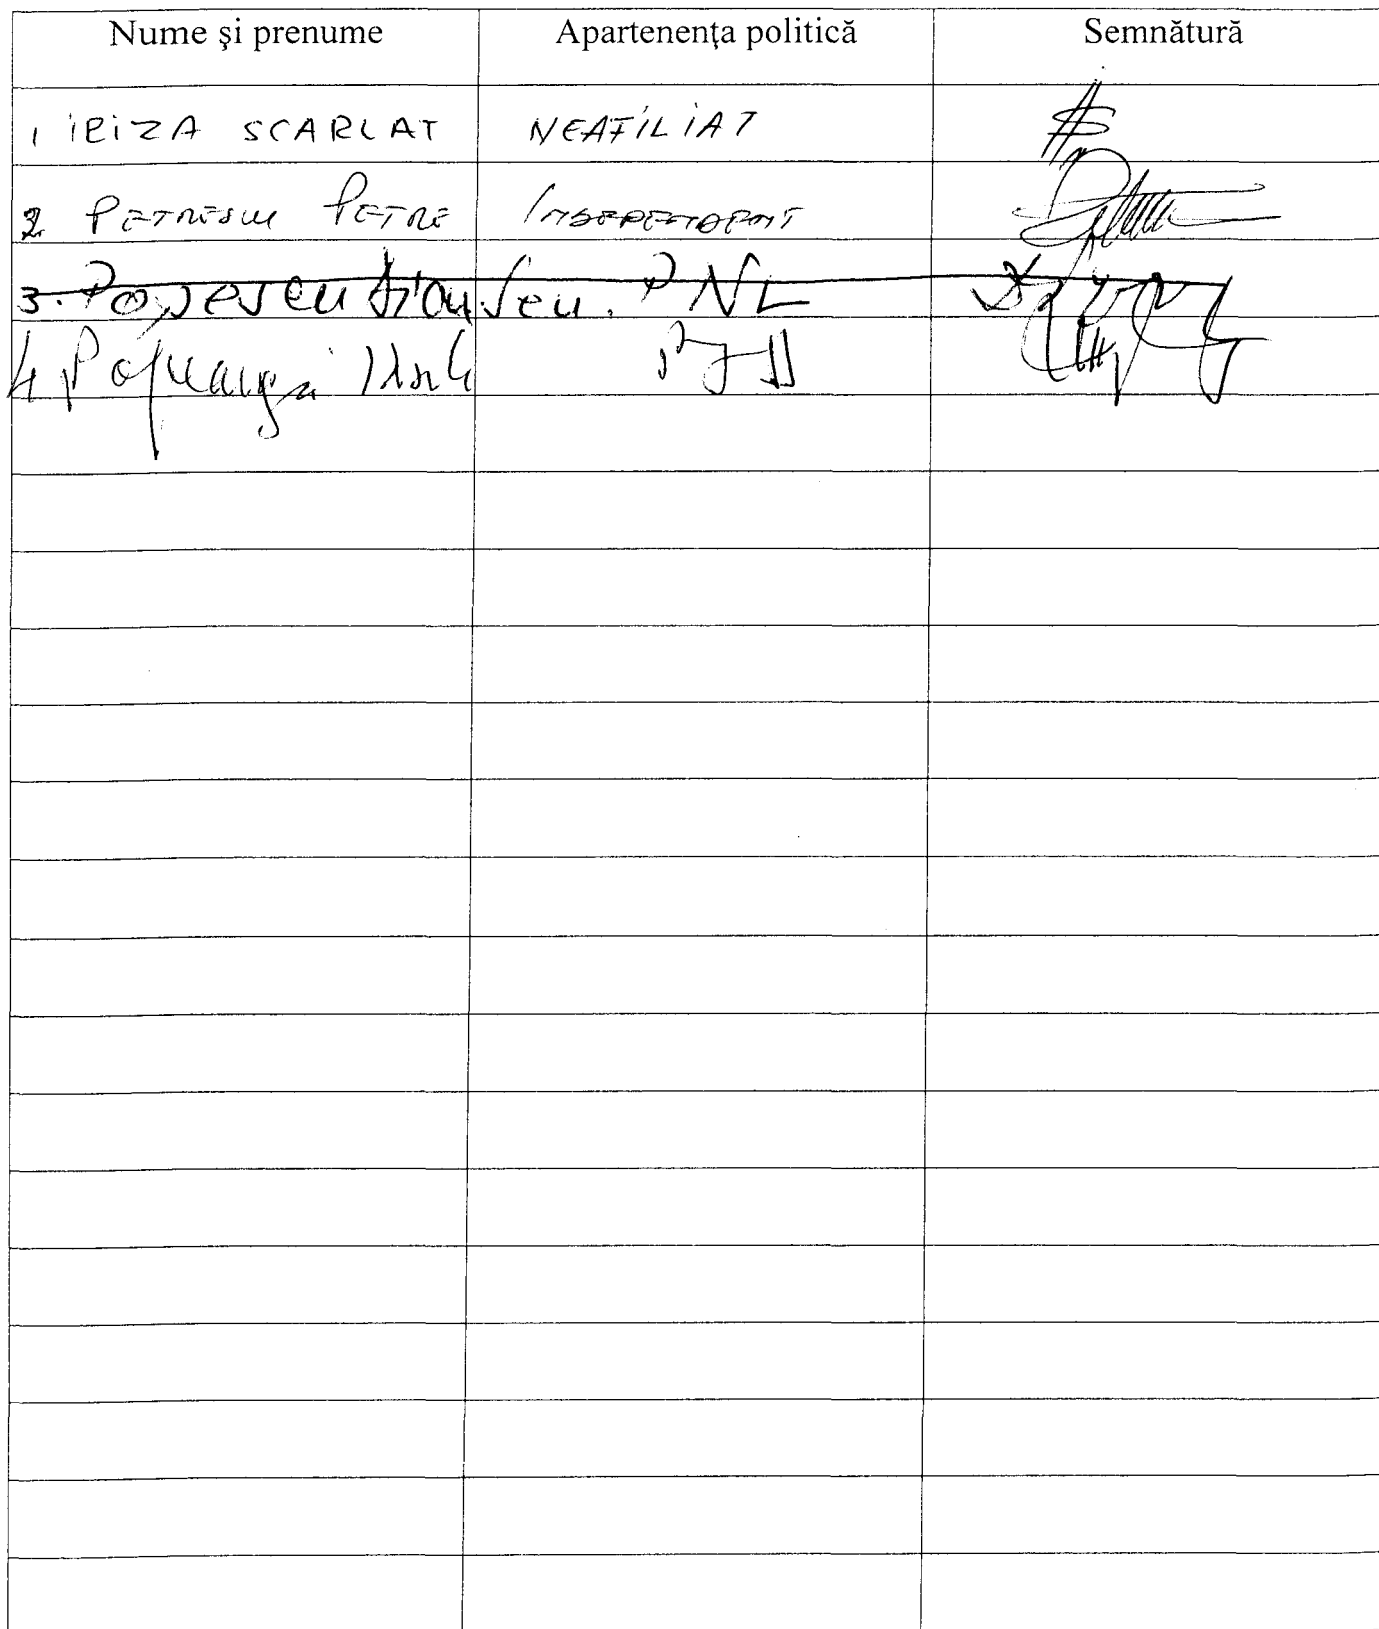 Nume şi prenume Apartenenţa politică Semnătură
1 IRIZA SCARLAT NEAFILIAT
2. PETRESCU PETRE INDEPENDENT
3. Popescu PNL
4